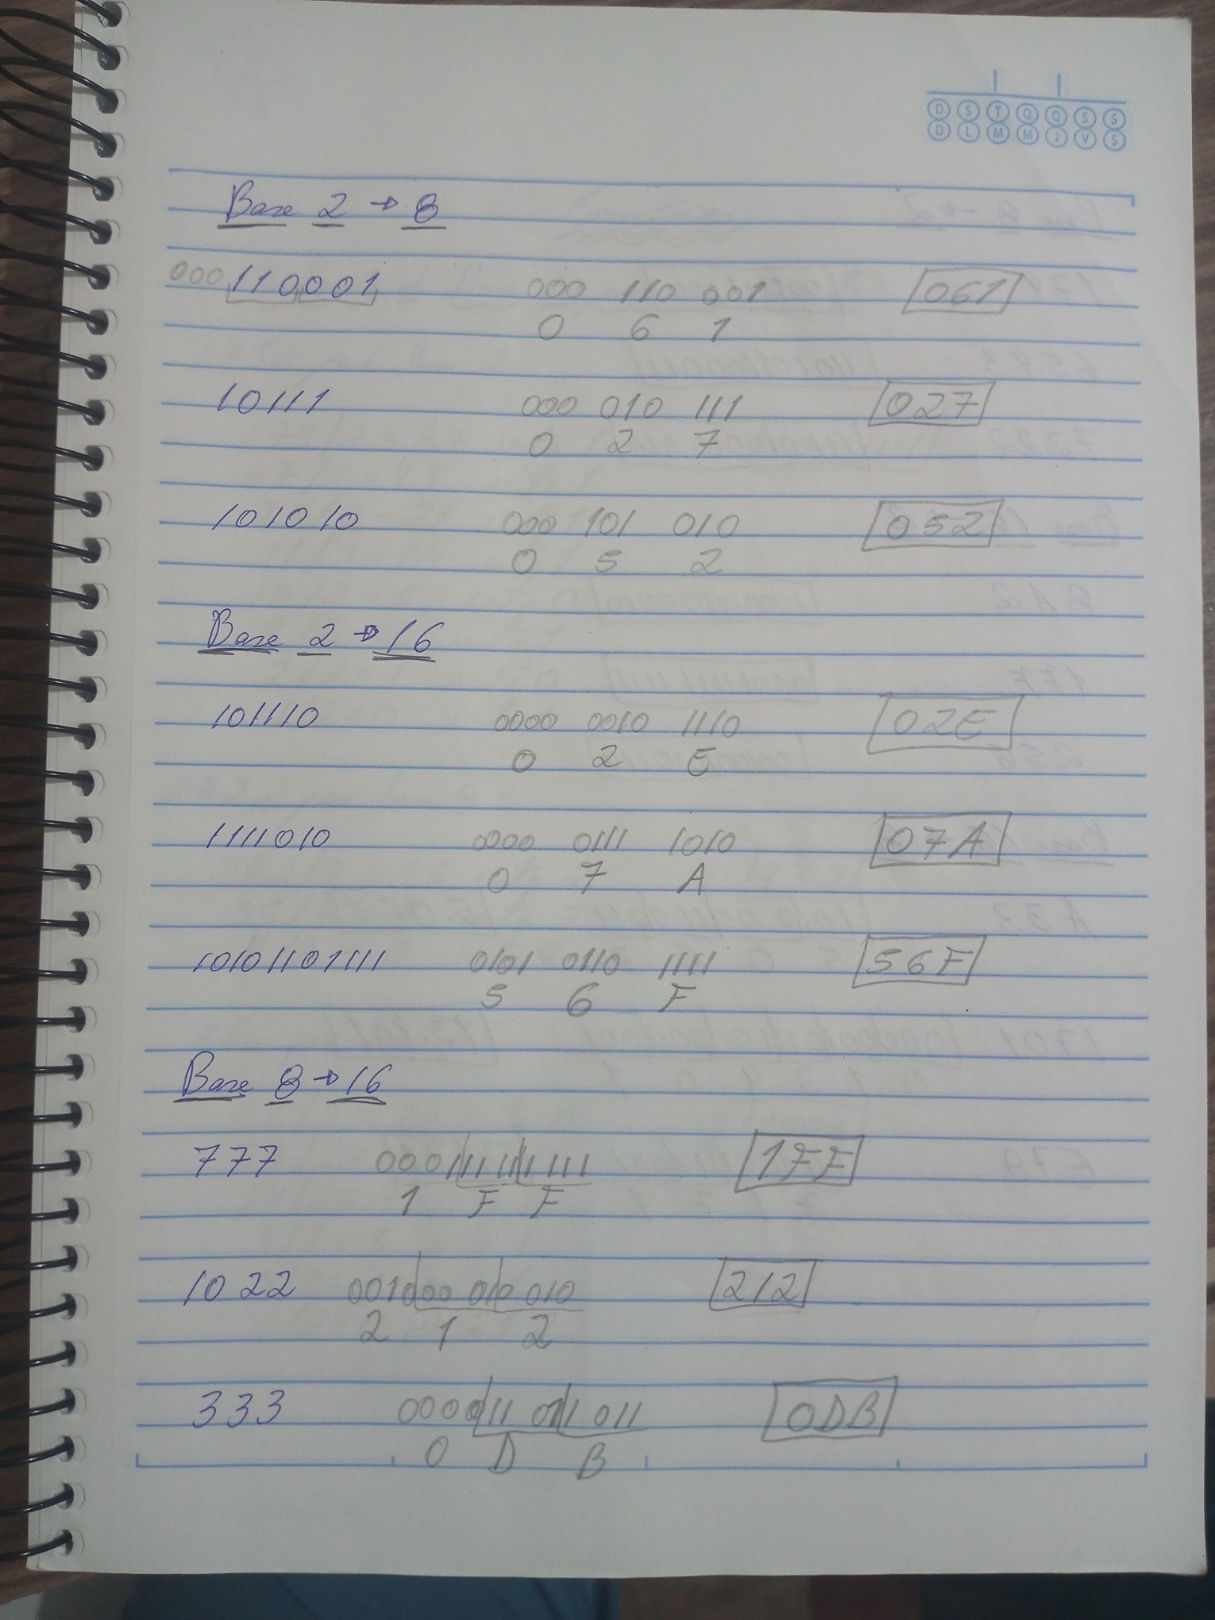 D S T Q Q S S
D L M M J V S
Base 2 → 8
000110001 000 110 001 061
0 6 1
10111 000 010 111 027
0 2 7
101010 000 101 010 052
0 5 2
Base 2 → 16
101110 0000 0010 1110 02E
0 2 E
1111010 0000 0111 1010 07A
0 7 A
10101101111 0101 0110 1111 56F
5 6 F
Base 8 → 16
777 000111 111 111 1FF
1 F F
1022 001000 010 010 212
2 1 2
333 000011 011 011 0DB
0 D B